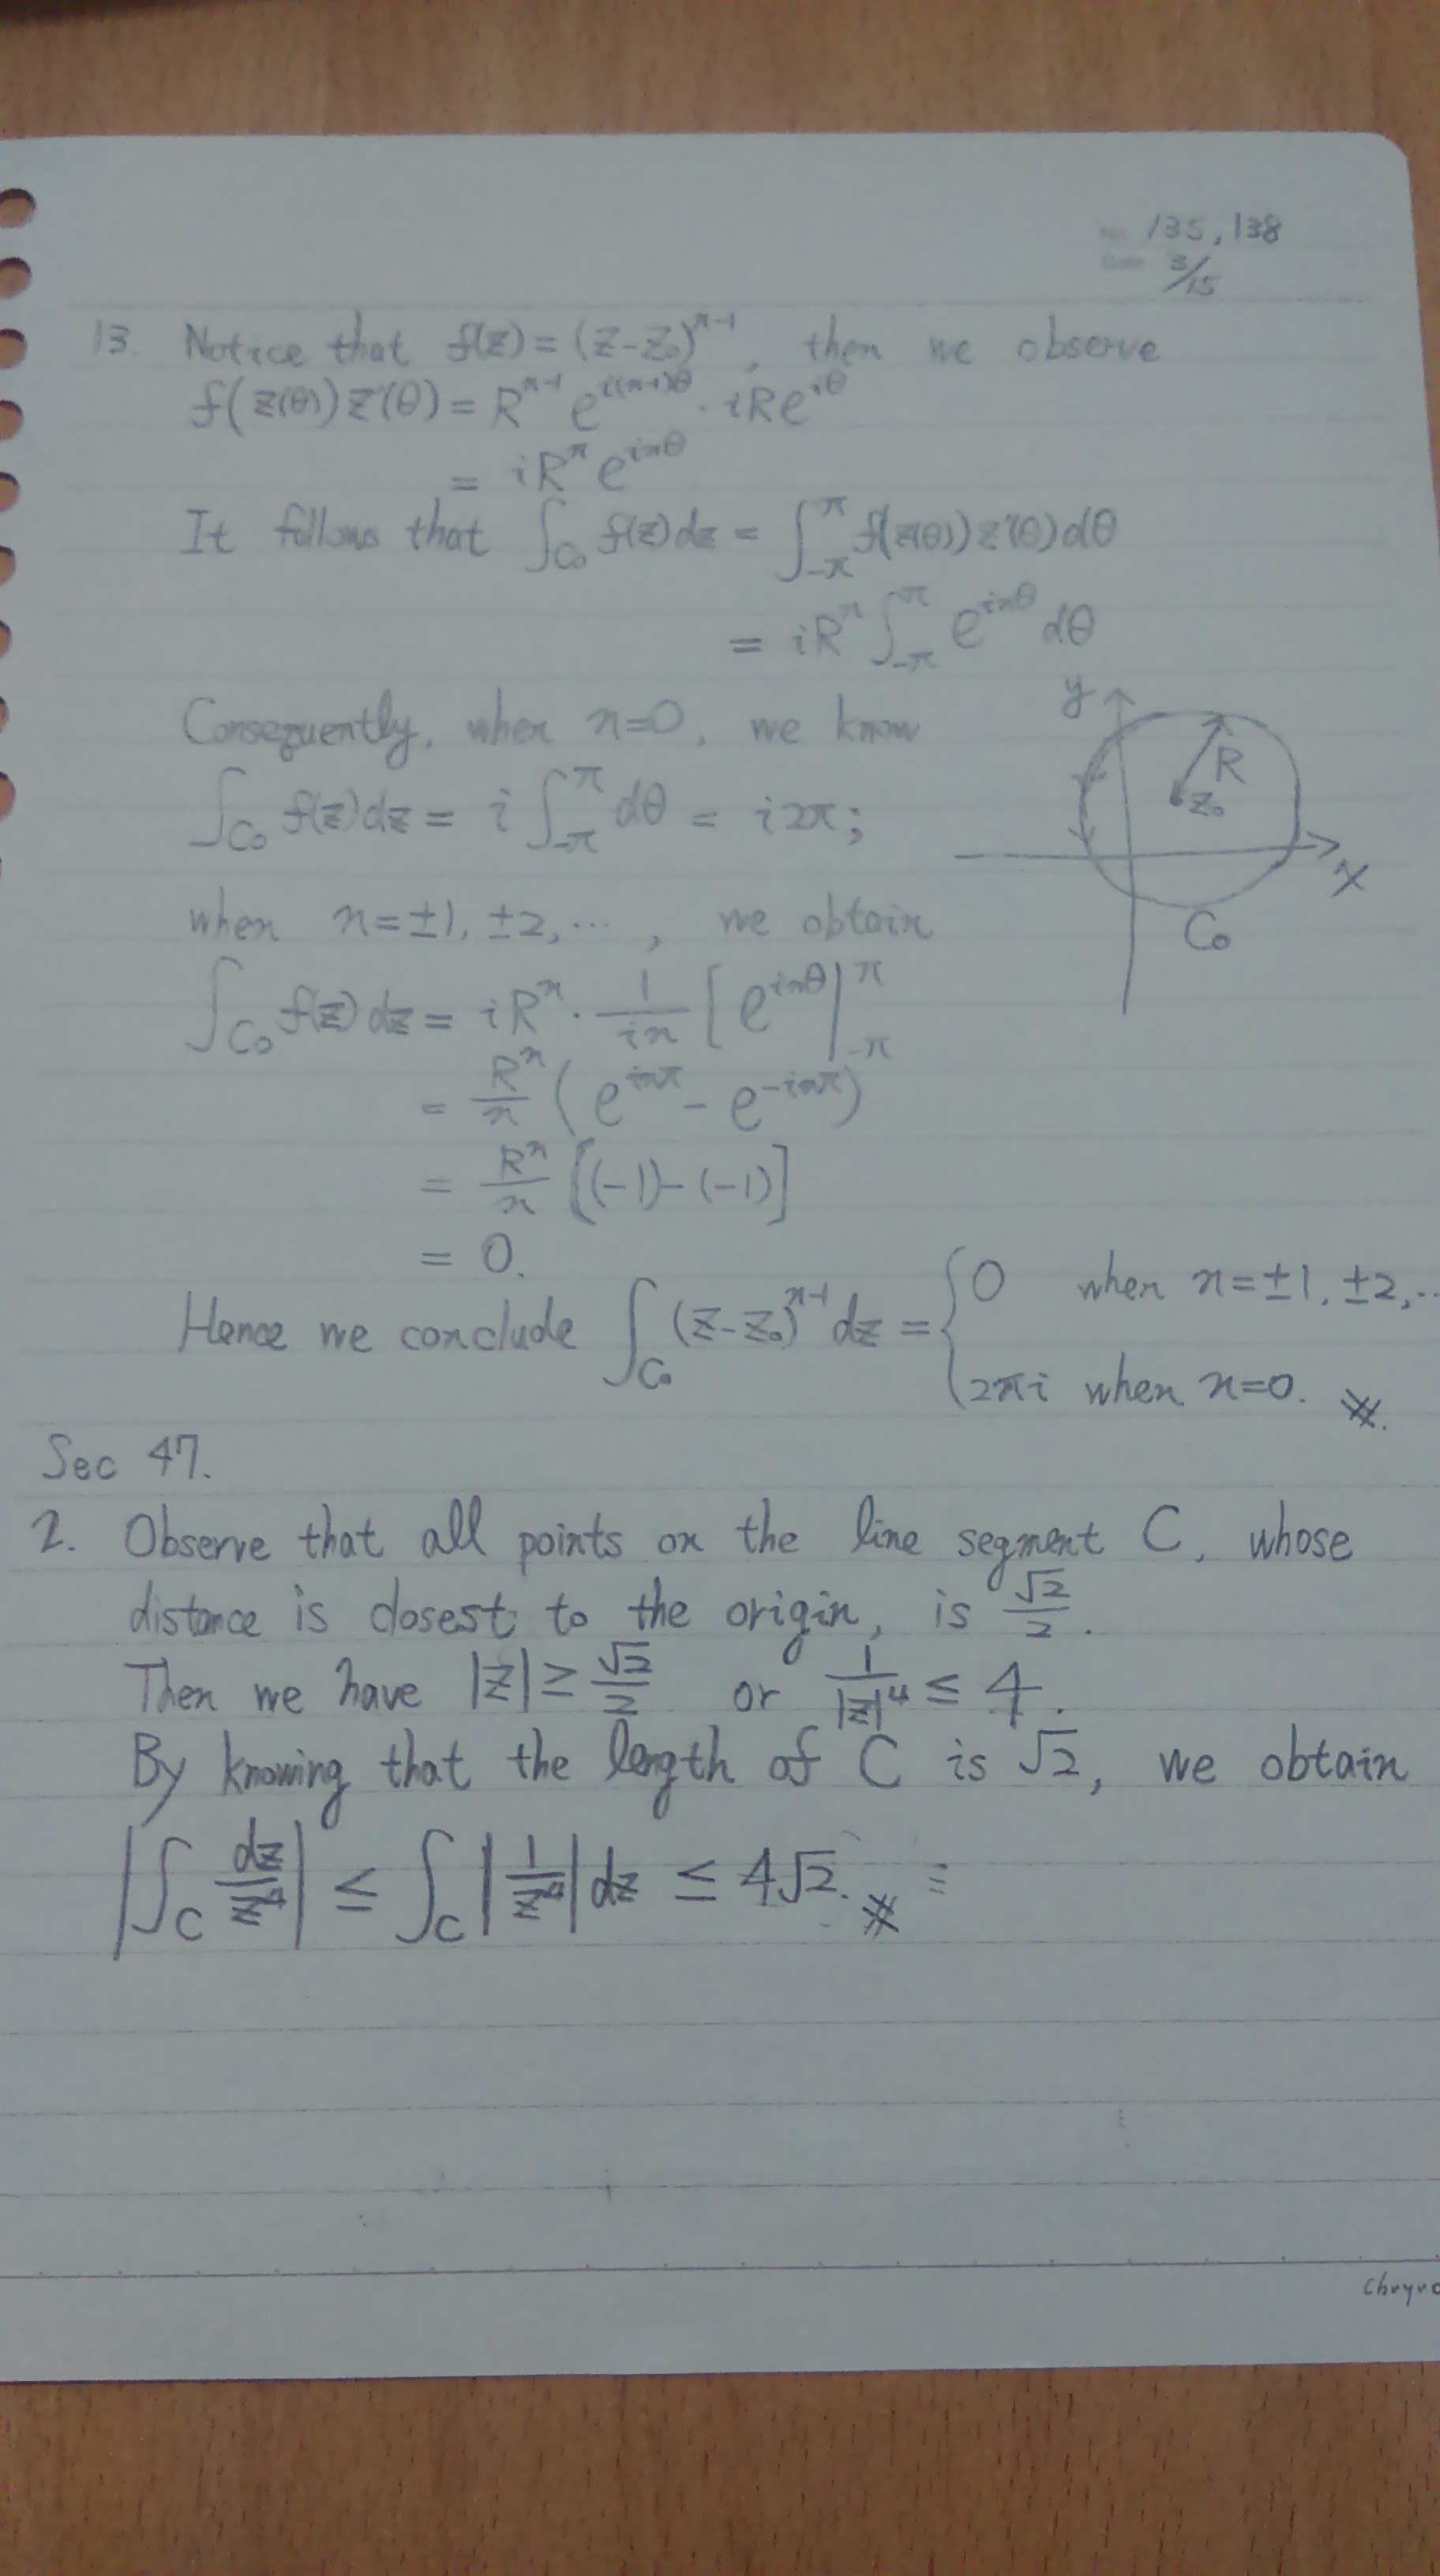 135, 138
3/15
13. Notice that f(z) = (z-z₀)ⁿ⁻¹, then we observe
f(z(θ))z'(θ) = Rⁿ⁻¹ e^{i(n-1)θ} · iRe^{iθ}
= iRⁿ e^{inθ}
It follows that ∫_{C₀} f(z)dz = ∫_{-π}^{π} f(z(θ))z'(θ)dθ
= iRⁿ ∫_{-π}^{π} e^{inθ} dθ
Consequently, when n=0, we know
∫_{C₀} f(z)dz = i ∫_{-π}^{π} dθ = i2π;
y
R
z₀
x
C₀
when n=±1, ±2, ⋯ , we obtain
∫_{C₀} f(z)dz = iRⁿ · 1/(in) [e^{inθ}|_{-π}^{π}
= Rⁿ/n (e^{inπ} - e^{-inπ})
= Rⁿ/n [(-1)-(-1)]
= 0.
Hence we conclude ∫_{C₀} (z-z₀)ⁿ⁻¹ dz = { 0 when n=±1, ±2,⋯
2πi when n=0. ※
Sec 47.
2. Observe that all points on the line segment C, whose
distance is closest to the origin, is √2/2.
Then we have |z| ≥ √2/2 or 1/|z|⁴ ≤ 4.
By knowing that the length of C is √2, we obtain
|∫_C dz/z⁴| ≤ ∫_C |1/z⁴| dz ≤ 4√2. ※